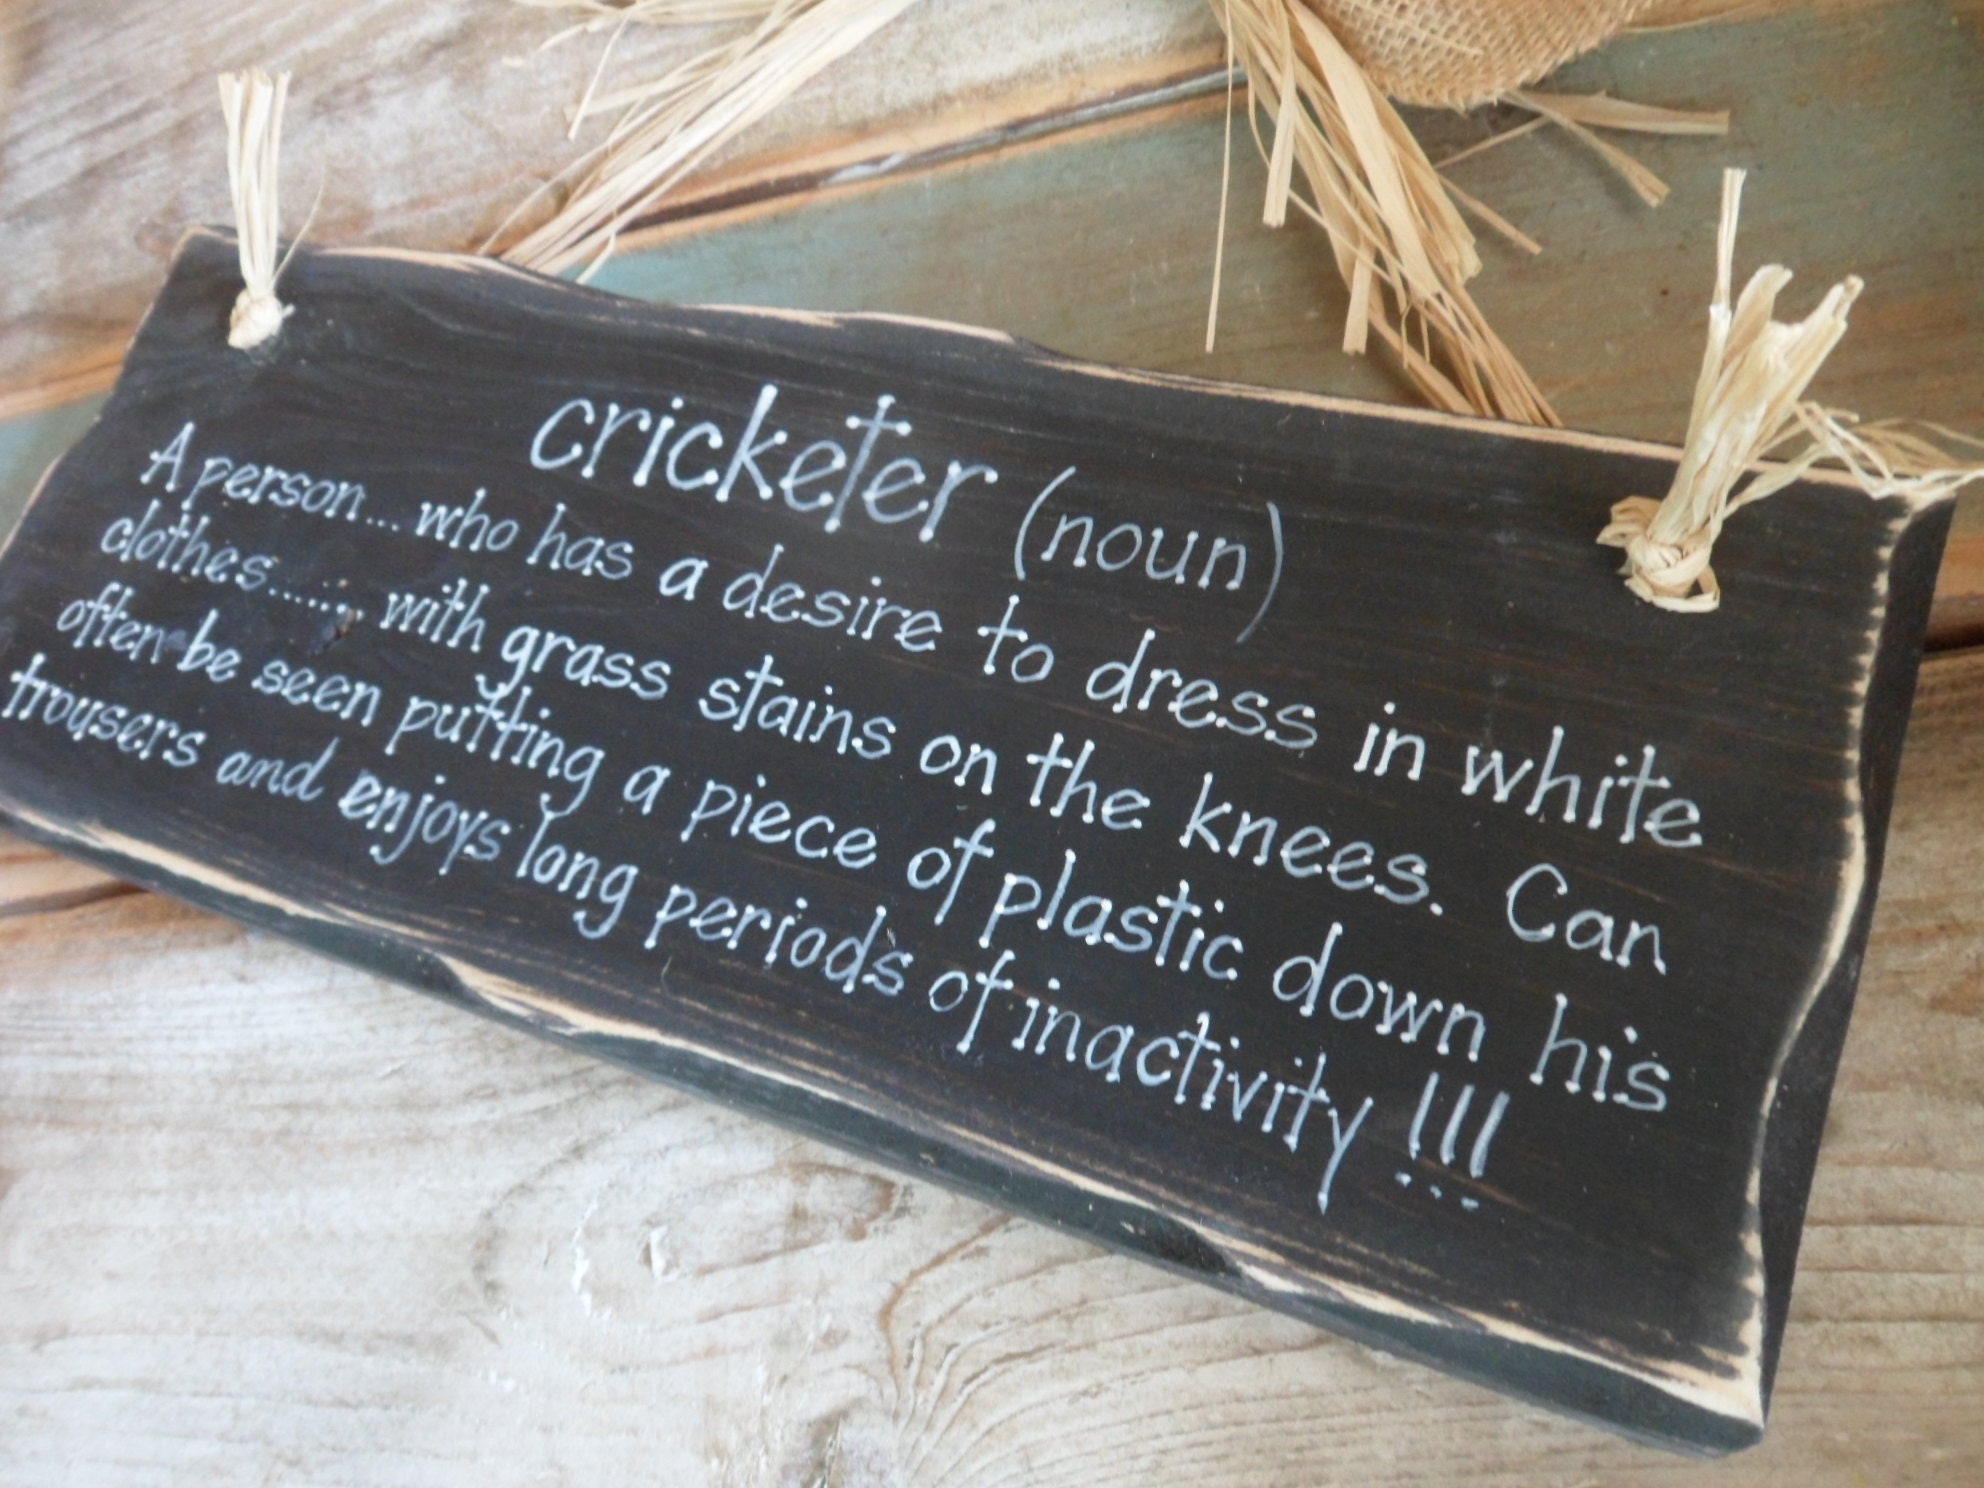 cricketer (noun)
A person... who has a desire to dress in white
clothes....... with grass stains on the knees. Can
often be seen putting a piece of plastic down his
trousers and enjoys long periods of inactivity !!!